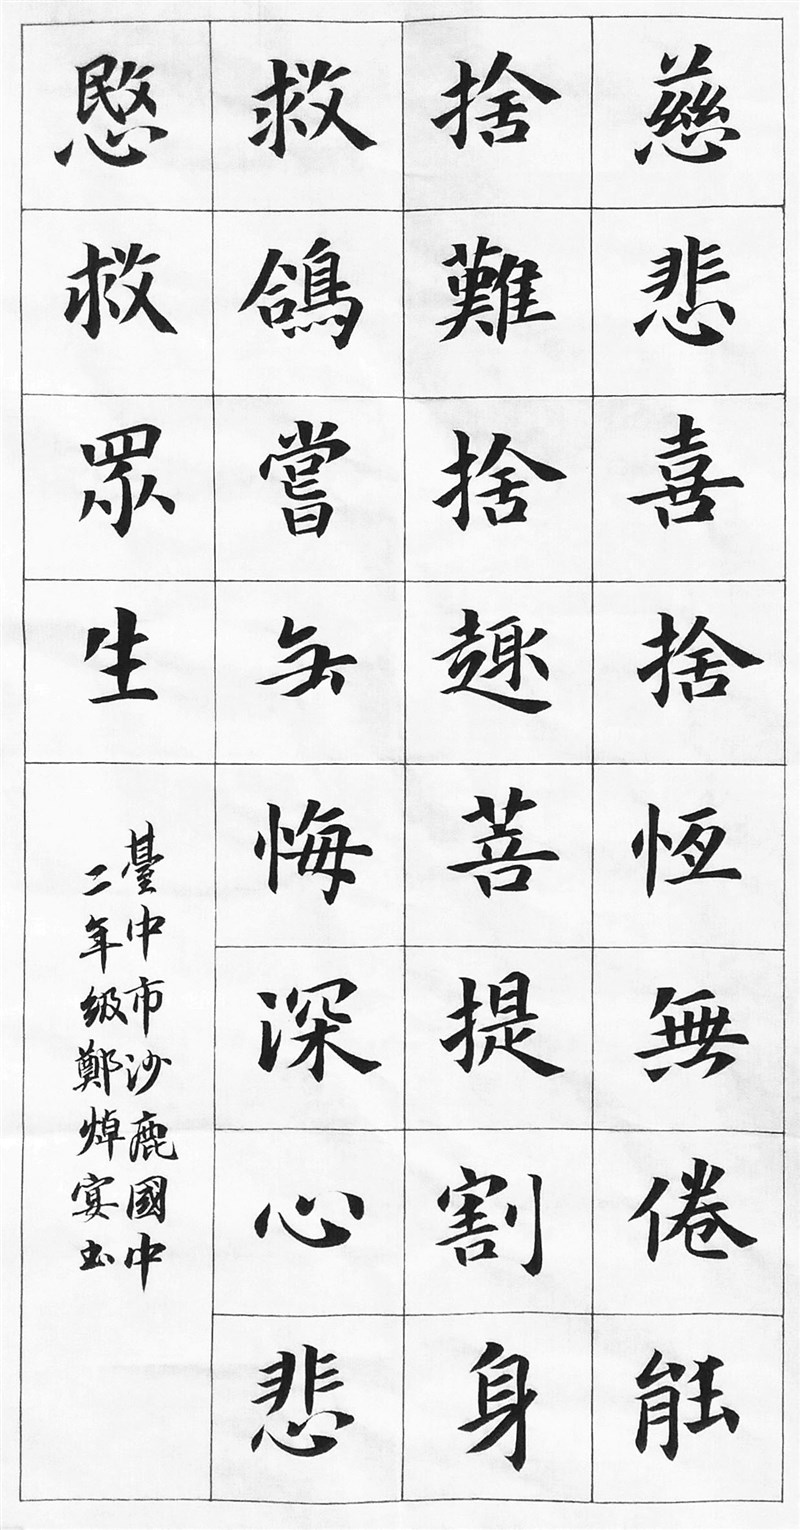 慈悲喜捨恆無倦能
捨難捨趣菩提割身
救鴿嘗無悔深心悲
愍救眾生
臺中市沙鹿國中
二年級鄭焯宴書